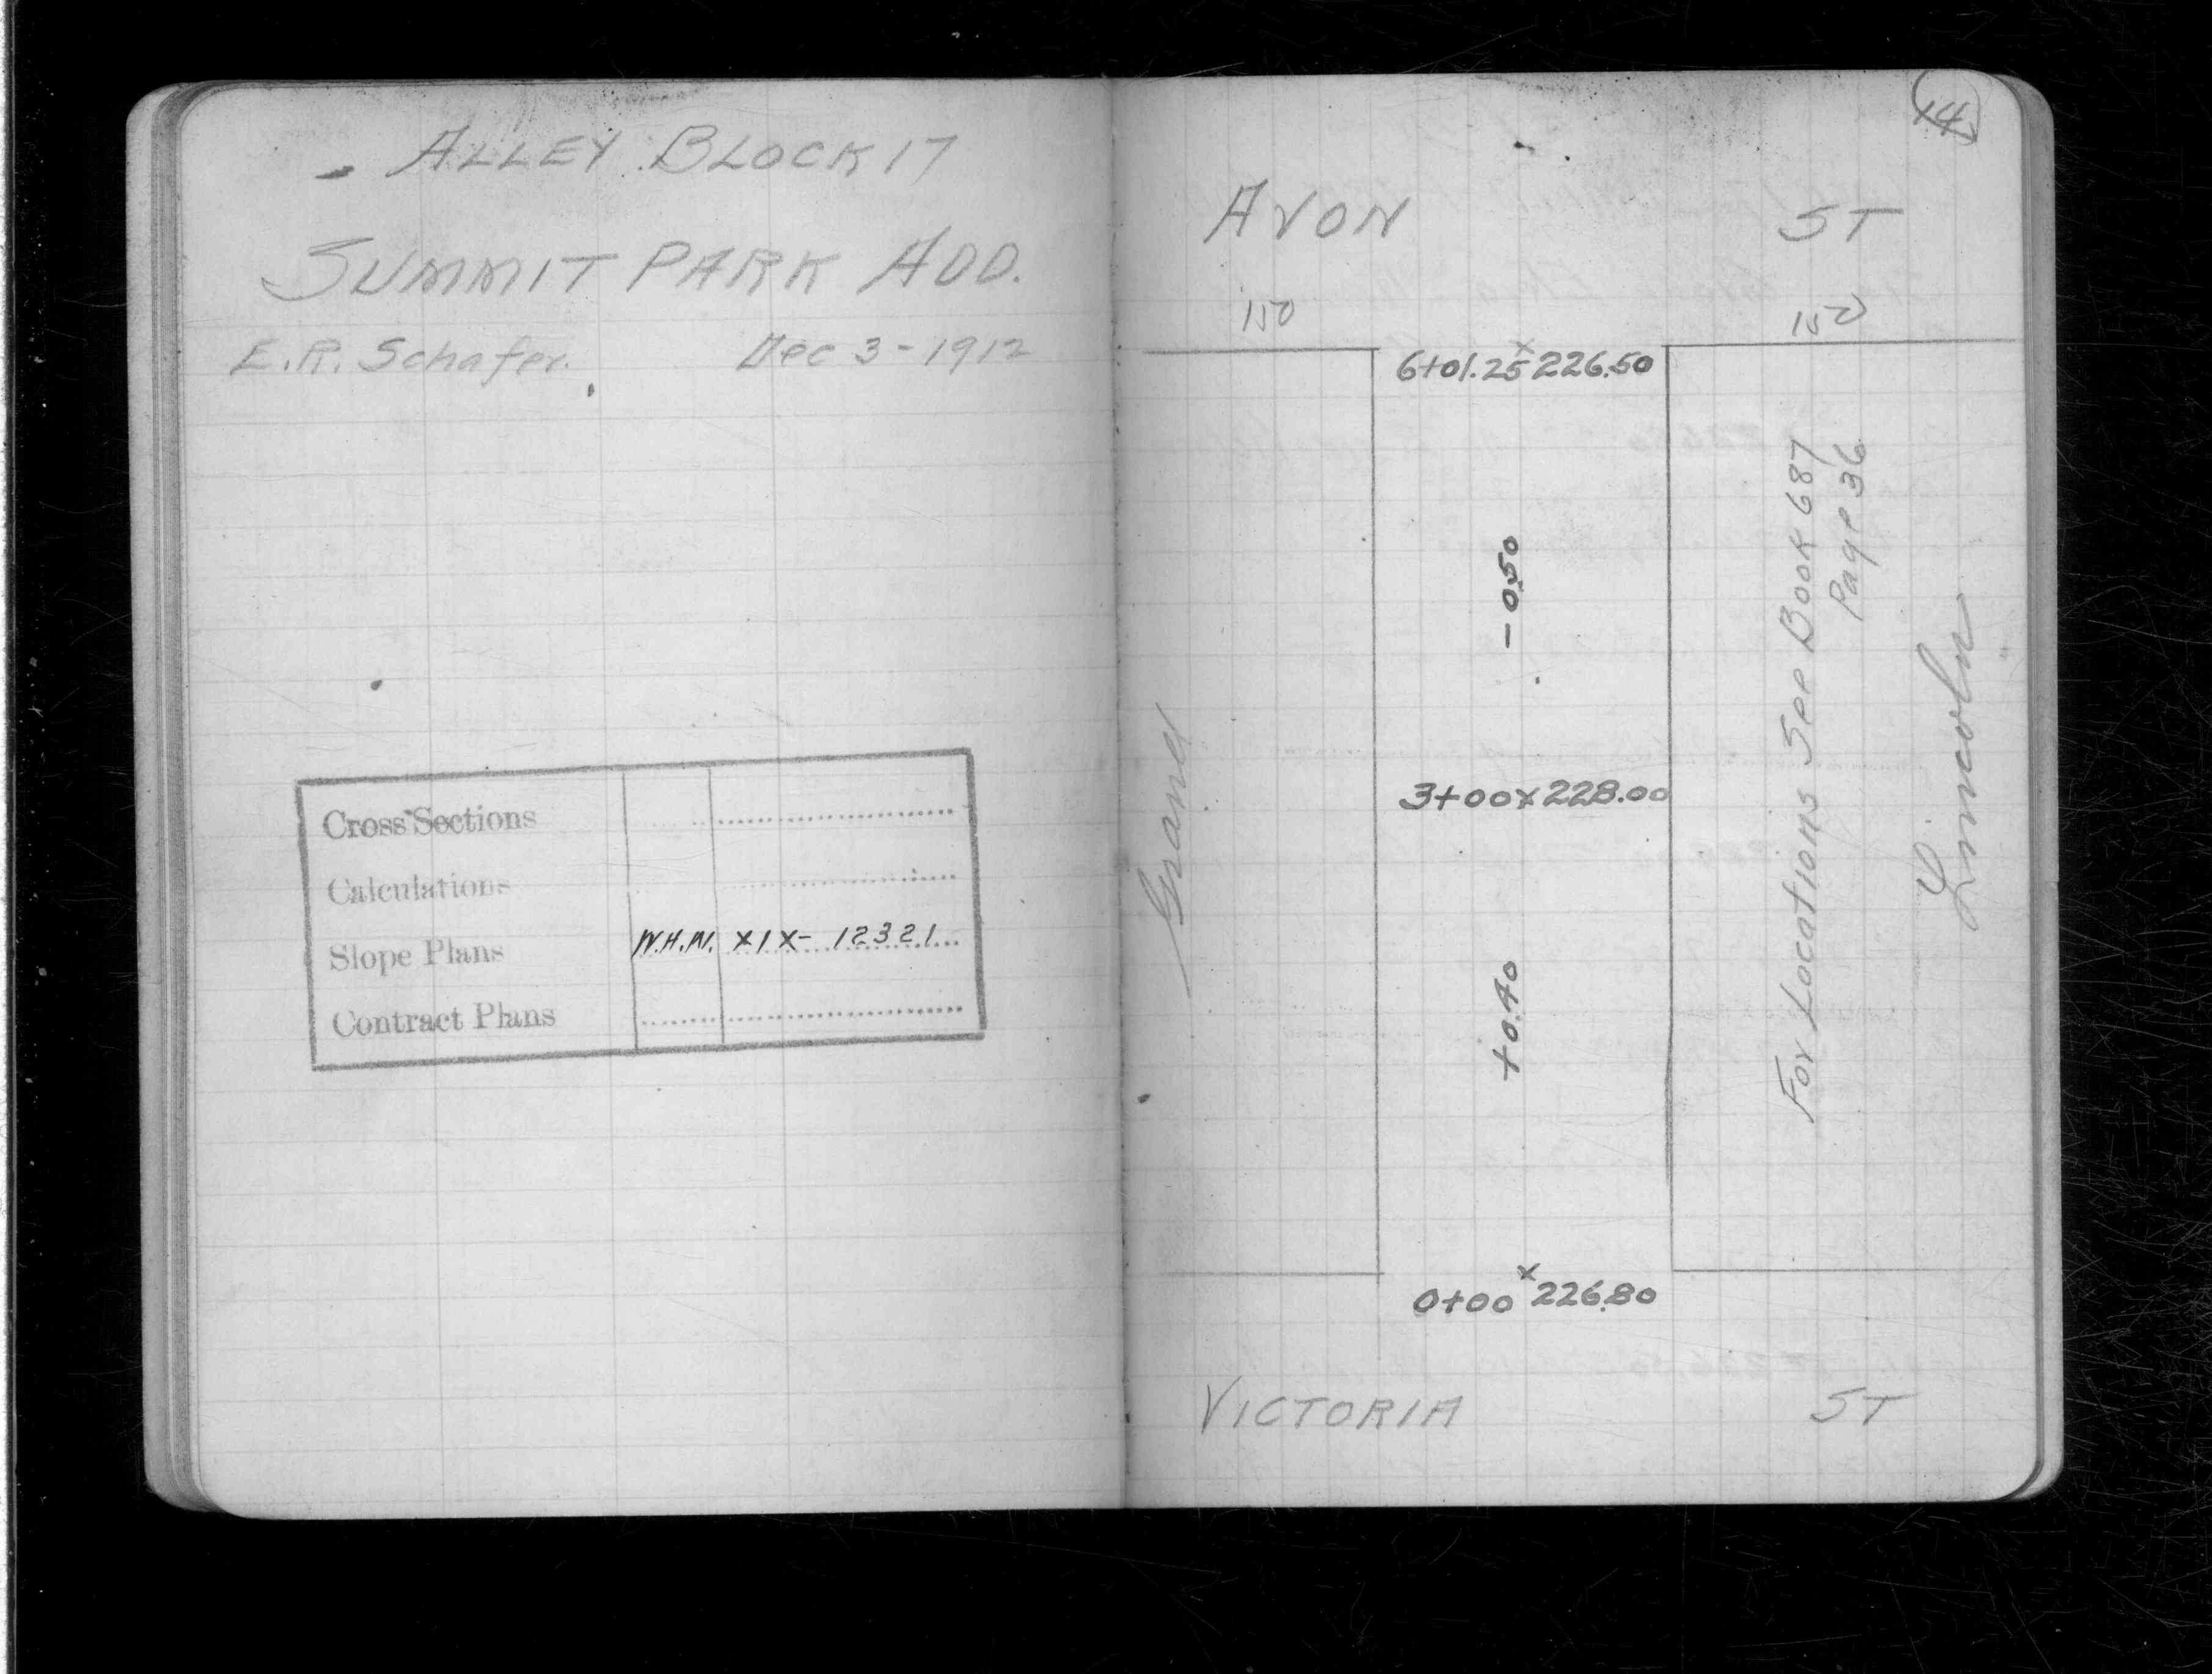 ALLEY BLOCK 17
SUMMIT PARK ADD.
E.R. Schafer. Dec 3-1912
Cross Sections
Calculations
Slope Plans W.H.W. XIX- 12321
Contract Plans
14
AVON ST
150 150
6+01.25 x 226.50
-0.50
For Locations See Book 687
Page 36
Lincoln
Grand
3+00 x 228.00
+0.40
0+00 x 226.80
VICTORIA ST